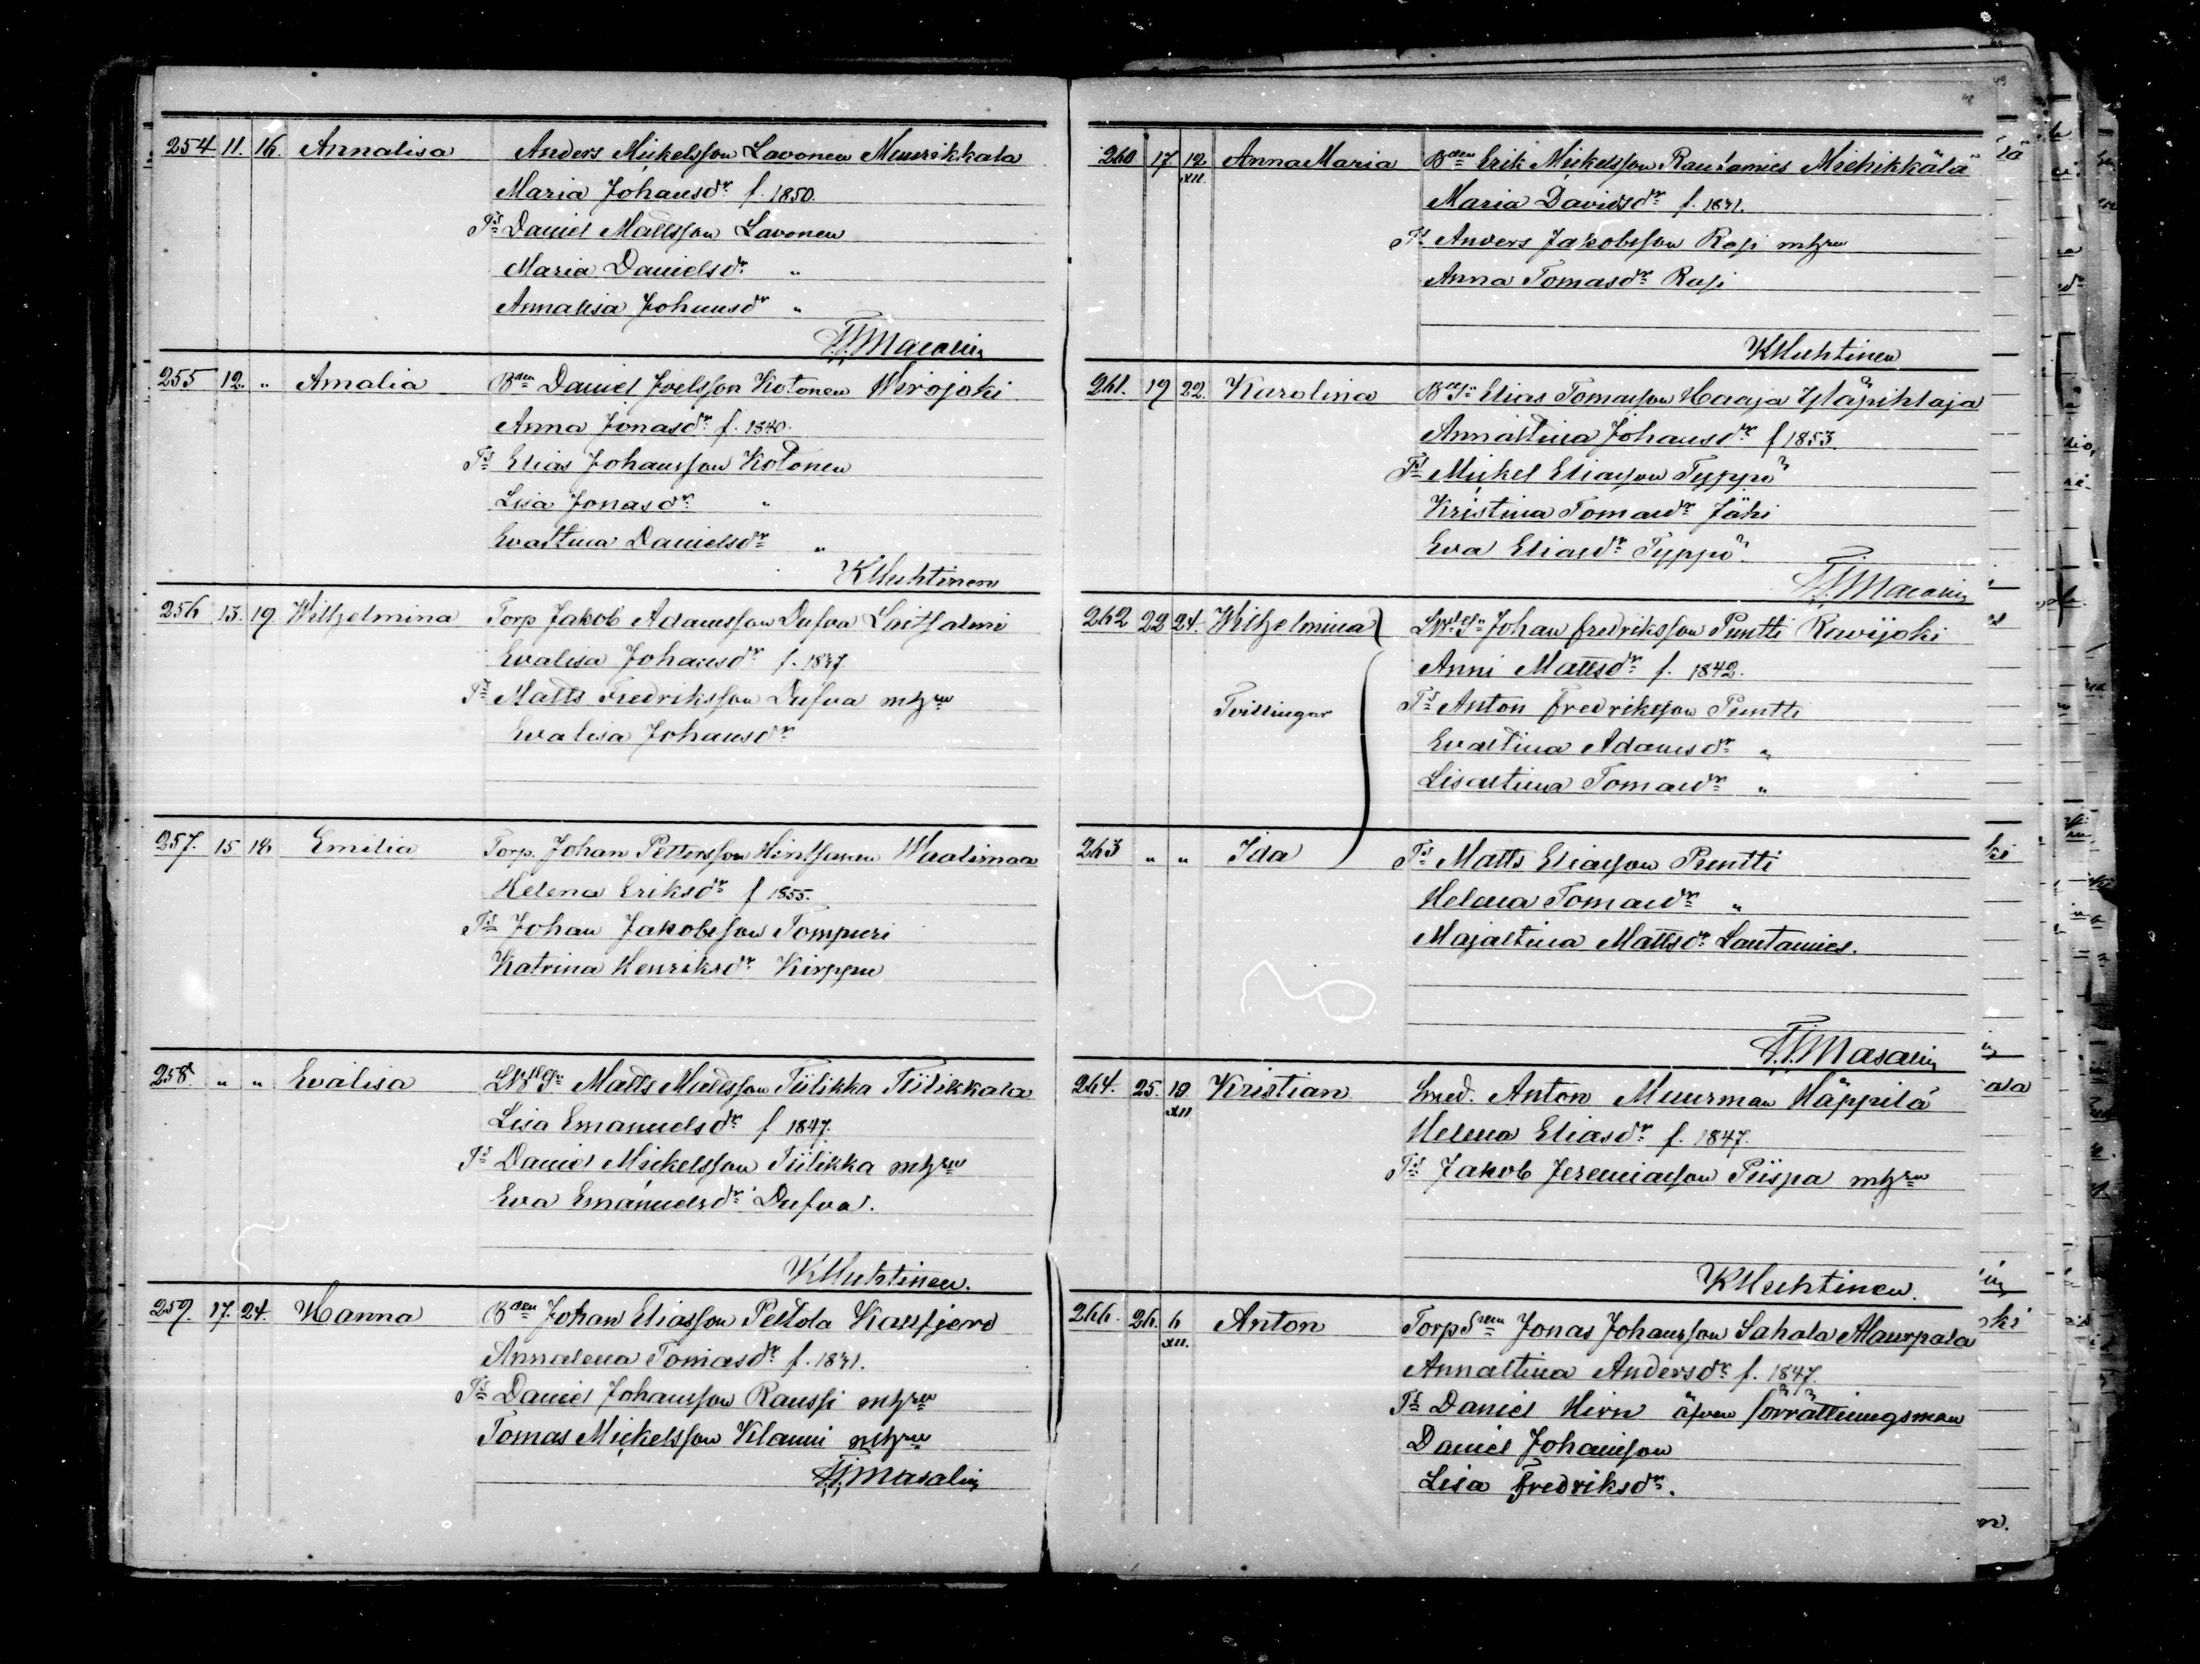 254 11. 16. Annalisa Anders Mickelsson Lavonen Muurikkala
Maria Johansdr f. 1850.
Ts Daniel Mattsson Lavonen
Maria Danielsdr "
Annalisa Johansdr "
F.F. Masalin
255 12. " Amalia Bden Daniel Joelsson Kotonen Wirojoki
Anna Jonasdr f. 1840.
Ts Elias Johansson Kotonen
Lisa Jonasdr "
Evastina Danielsdr "
K Huhtinen
256 13. 19. Wilhelmina Torp Jakob Adamsson Dufva Laitsalmi
Evalisa Johansdr f. 1847
Ts Matts Fredriksson Dufva mhru
Evalisa Johansdr
257. 15 18. Emilia Torp. Johan Pettersson Hintsanen Waalimaa
Helena Eriksdr f 1855.
Ts Johan Jakobsson Tompuri
Katrina Henriksdr Kirppu
258. " " Evalisa Matts Mattsson Tiilikka Tiilikkala
Lisa Emanuelsdr f 1847.
Ts Daniel Mickelsson Tiilikka mhru
Eva Emanuelsdr Dufva.
K Huhtinen.
259. 17. 24. Hanna Bden Johan Eliasson Peltola Kallfjerd
Annalena Tomasdr f. 1841.
Ts Daniel Johansson Raussi mhru
Tomas Mickelsson Klami mhru
F.F. Masalin
48
49
260 17 12 XII. Anna Maria Bden Erik Mickelsson Rautamies Miehikkälä
Maria Davidsdr f. 1841.
Ts Anders Jakobsson Rasi mhru
Anna Tomasdr Rasi
K Huhtinen
261. 19 22. Karolina Elias Tomasson Haaja Yläpihlaja
Annastina Johansdr f 1853.
Ts Mickel Eliasson Typpö
Kristina Tomasdr Jähi
Eva Eliasdr Typpö
F.F. Masalin
262 22 24. Wilhelmina Johan Fredriksson Puntti Ravijoki
Anni Mattsdr f. 1842.
Tvillingar Ts Anton Fredriksson Puntti
Evastina Adamsdr "
Lisastina Tomasdr "
263 " " Ida Ts Matts Eliasson Puntti
Helena Tomasdr "
Majastina Mattsdr Lautamies.
F.F. Masalin
264. 25. 10 XII Kristian Smed. Anton Muurman Häppilä
Helena Eliasdr f. 1847.
Ts Jakob Jeremiasson Piispa mhru
K Huhtinen.
266. 26. 6 XII. Anton Torp Jonas Johansson Sahala Alaurpala
Annastina Andersdr f. 1847.
Ts Daniel Hirn äfven förrättningsman
Daniel Johansson
Lisa Fredriksdr.